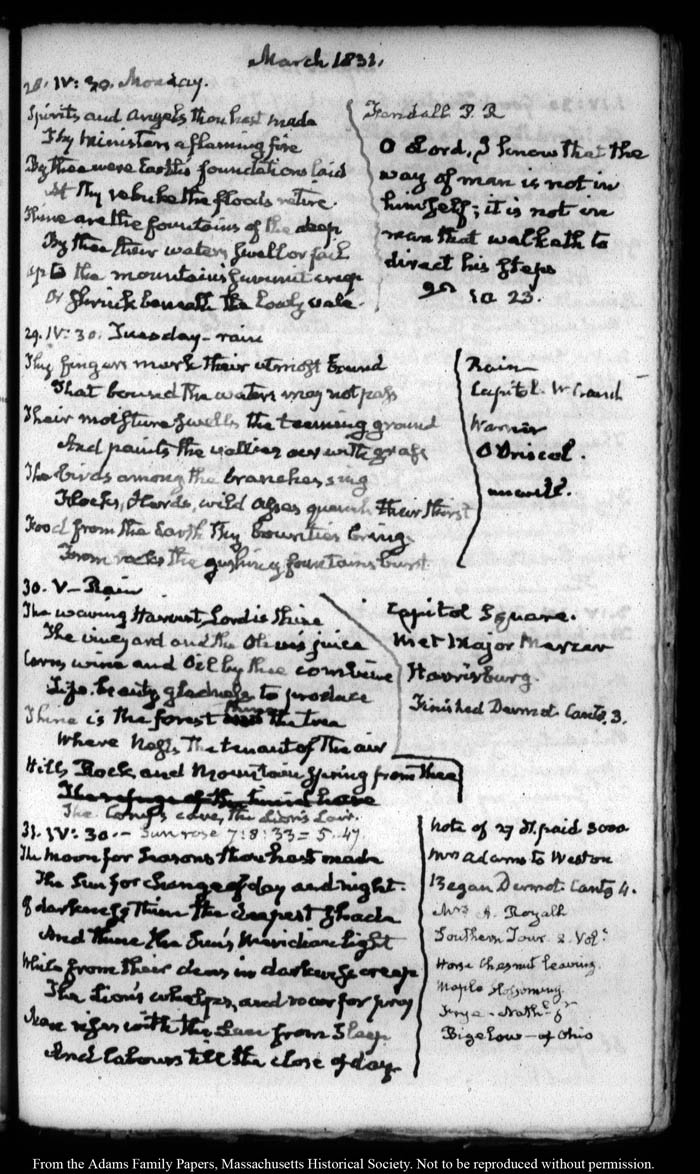 March 1831.
28. IV: 30. Monday.
Spirits and Angels thou hast made
Thy Ministers a flaming fire
By thee were Earth's foundations laid
At thy rebuke the floods retire.
Thine are the fountains of the deep
By thee their waters swell or fail
Up to the mountains summit creep
Or shrink beneath the lowly vale.
Kendall P. R
O Lord, I know that the
way of man is not in
himself; it is not in
man that walketh to
direct his steps
10 23.
29. IV: 30. Tuesday - rain
Thy fingers mark their utmost bound
That bound the waters may not pass
Their moisture swells the teeming ground
And paints the vallies o'er with grass
The birds among the branches sing
Flocks, Herds, wild asses quench their thirst
Food from the Earth Thy bounties bring
From rocks the gushing fountains burst
Rain
Capitol. W. Cranch
Warner
O'Driscol.
unwell.
30. V - Rain
The waving Harvest, Lord is thine
The vineyard and the Olive's juice
Corn, wine and Oil by thee combine
Life, beauty, gladness to produce
Thine is the forest thine the tree
Where Nests the tenant of the air
Hills, Rock, and Mountain spring from thee
The refuge of the timid hare
The Coney's cave, the Lion's Lair.
Capitol Square.
Met Major Mercer
Harrisburg.
Finished Dermot. Canto 3.
31. IV: 30. - Sun rose 7:8:33 = 5.47.
The Moon for Seasons thou hast made
The Sun for change of day and night.
Of darkness thine the deepest shade
And thine the Sun's Meridian light
While from their dens in darkness creep
The Lion's whelps, and roar for prey
Man rises with the Sun from sleep
And labours till the close of day
Note of 27 Jt. paid 3000
Mrs Adams to Weston
Began Dermot. Canto 4.
Mrs A. Royall
Southern Tour 2. Vol:
Horse Chesnut leaving.
Maple blossoming
Frye - Nathl. Jr
Bigelow - of Ohio
From the Adams Family Papers, Massachusetts Historical Society. Not to be reproduced without permission.